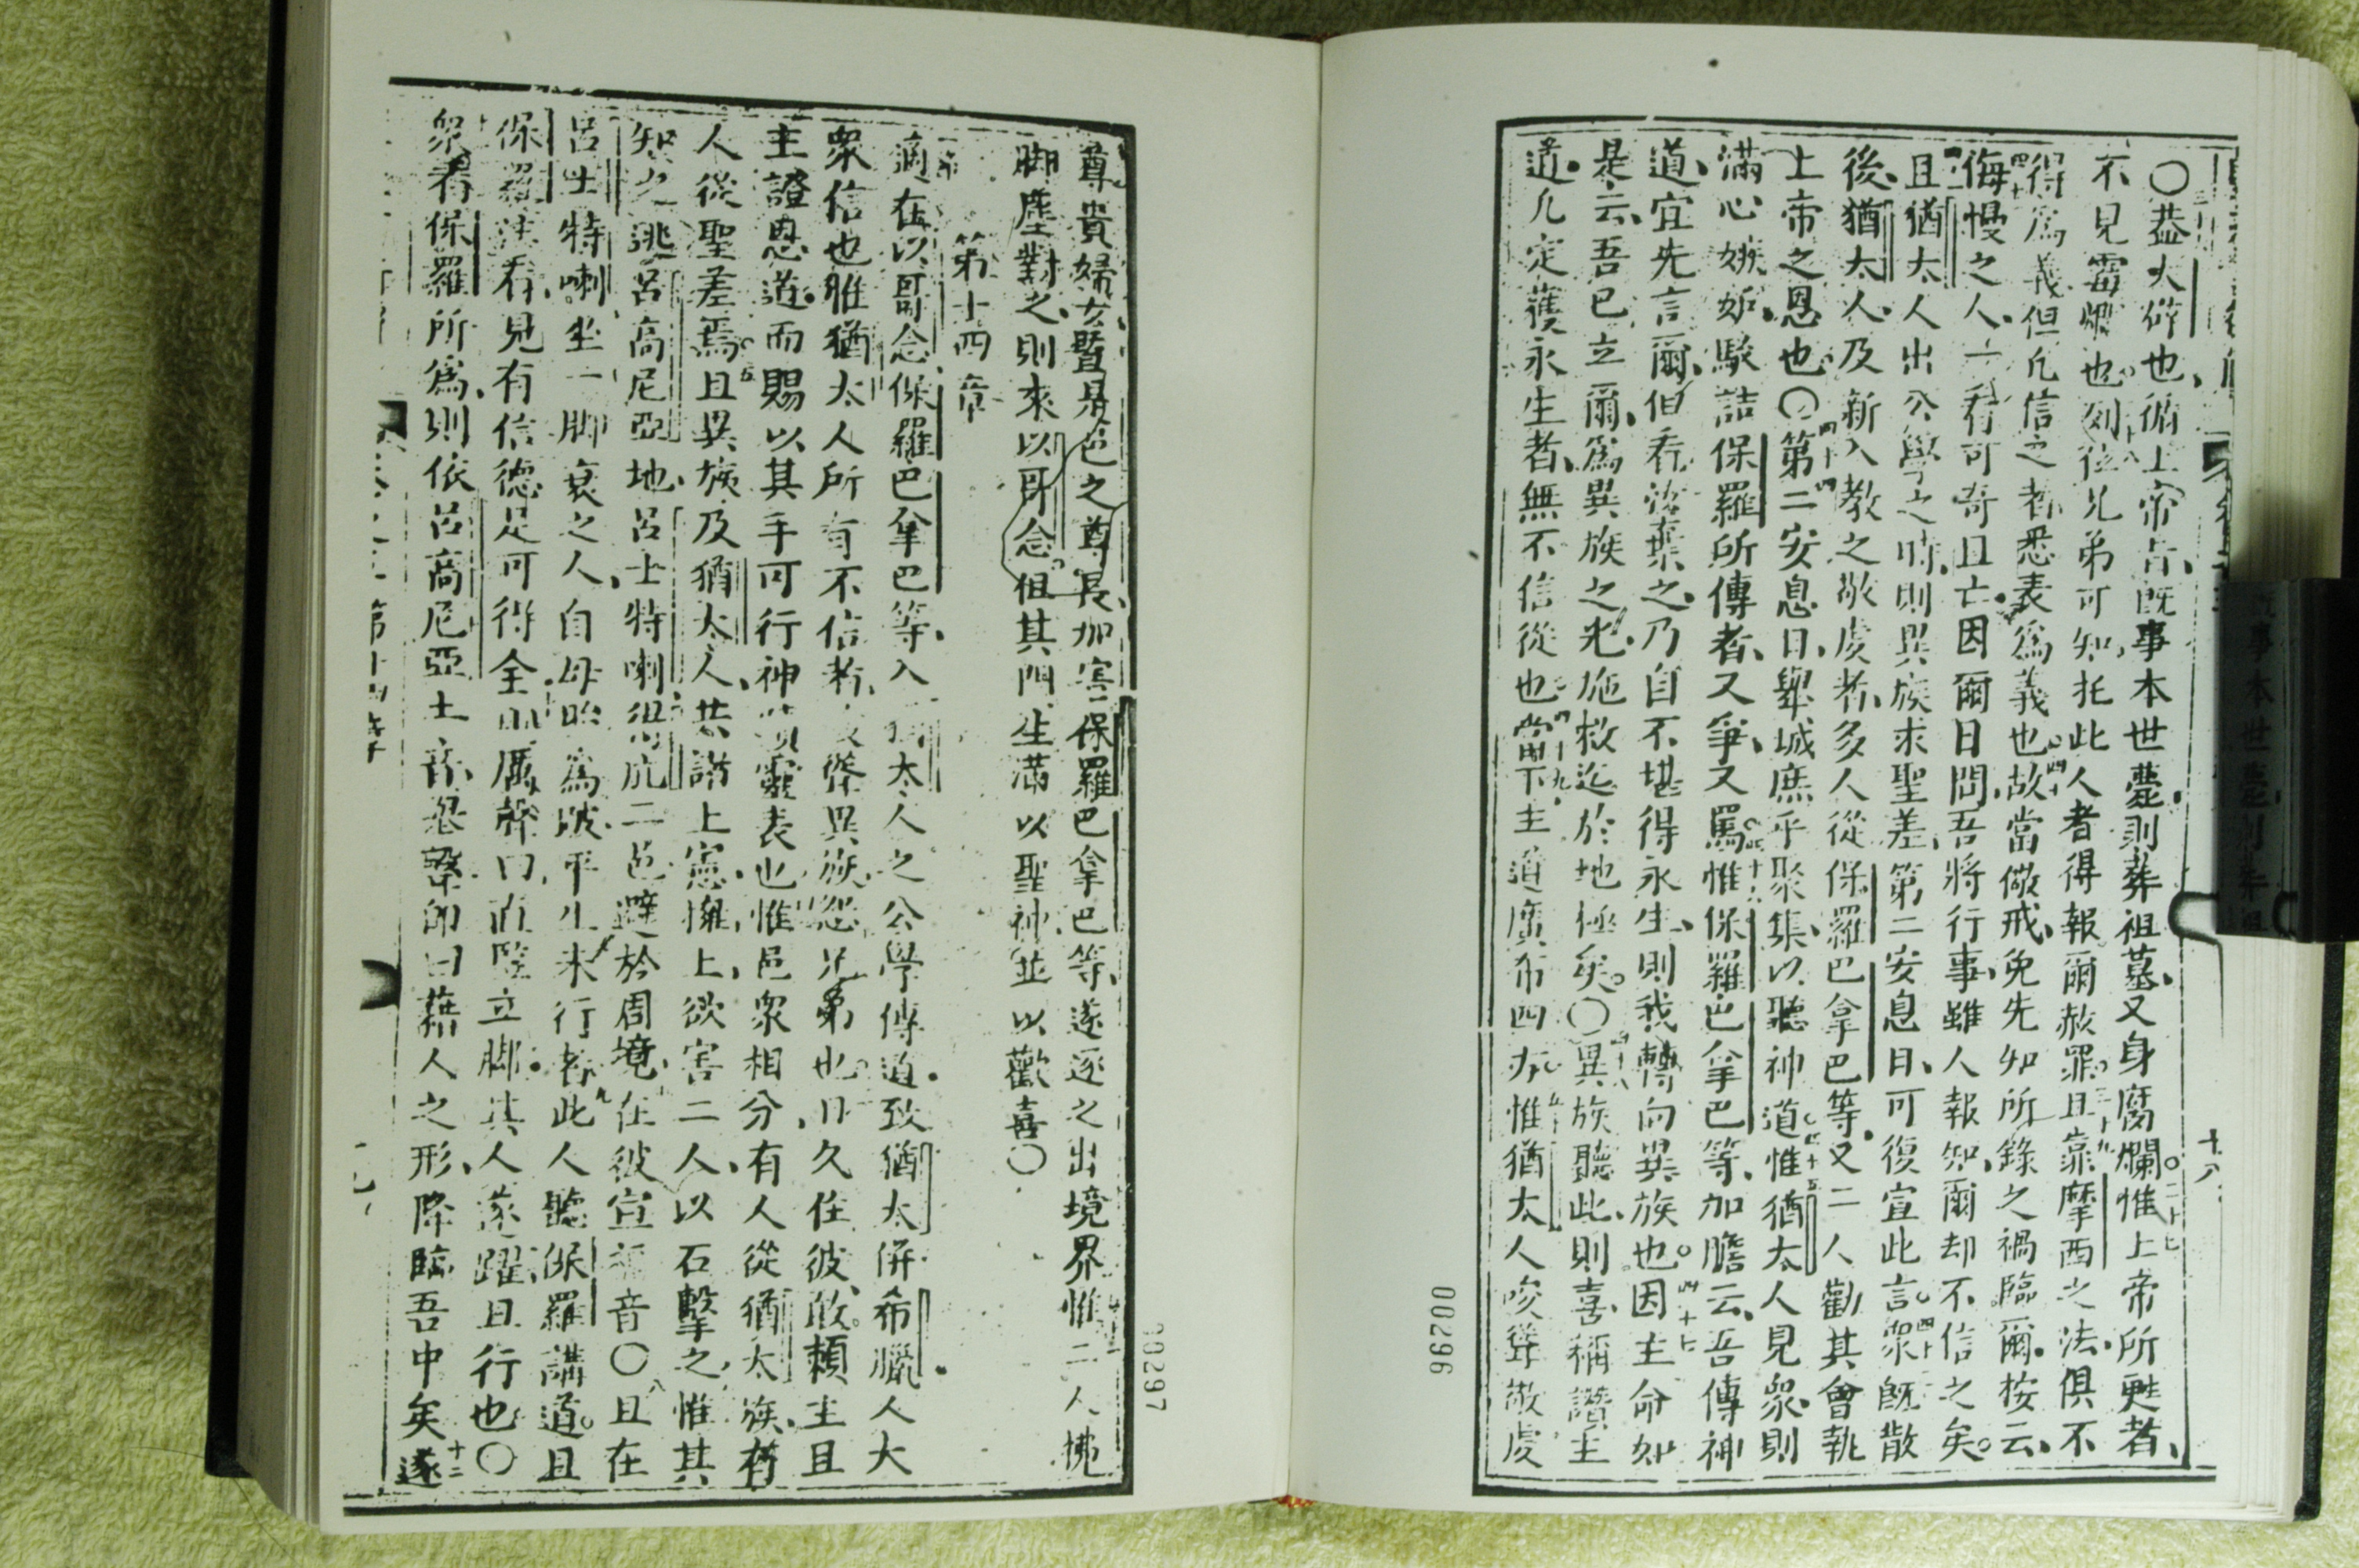 ○蓋大辟也循上帝旨既事本世臺則葬祖墓又身腐爛惟上帝所甦者
不見腐爛也列位兄弟可知托此人者得報爾赦罪且靠摩西之法俱不
得爲義但凡信之者悉表爲義也故當儆戒免先知所錄之禍臨爾按云
侮慢之人一看可奇且亡因爾日間吾將行事雖人報知爾却不信之矣
且猶太人出公學之時則異族求聖差第二安息日可復宣此言衆既散
後猶太人及新入教之敬虔者多人從保羅巴拿巴等又二人勸其會執
上帝之恩也○第二安息日舉城庶乎聚集以聽神道惟猶太人見衆則
滿心嫉妒駁詰保羅所傳者又爭又罵惟保羅巴拿巴等加膽云吾傳神
道宜先言爾但看汝棄之乃自不堪得永生則我轉向異族也因主命如
是云吾已立爾爲異族之光施救迄於地極矣○異族聽此則喜稱讚主
道凡定獲永生者無不信從也當下主道廣布四方惟猶太人唆聳敬虔
00296
尊貴婦女暨是邑之尊長加害保羅巴拿巴等遂逐之出境界惟二人拂
脚塵對之則來以哥念但其門生滿以聖神並以歡喜○
第十四章
適在以哥念保羅巴拿巴等入猶太人之公學傳道致猶太併希臘人大
衆信也惟猶太人所有不信者聳異族怨兄弟也日久住彼敢賴主且
主證恩道而賜以其手可行神靈表也惟邑衆相分有人從猶太族有
人從聖差焉且異族及猶太人共諸上憲擁上欲害二人以石擊之惟其
知之逃呂高尼亞地呂士特喇得庇二邑避於周境在彼宣福音○且在
呂士特喇坐一脚衰之人自母胎爲跛平生未行者此人聽保羅講道且
保羅注看見有信德足可得全則厲聲曰直陞立脚其人遂躍且行也○
衆看保羅所爲則依呂高尼亞土音忽聲即曰藉人之形降臨吾中矣遂
第十四章
00297